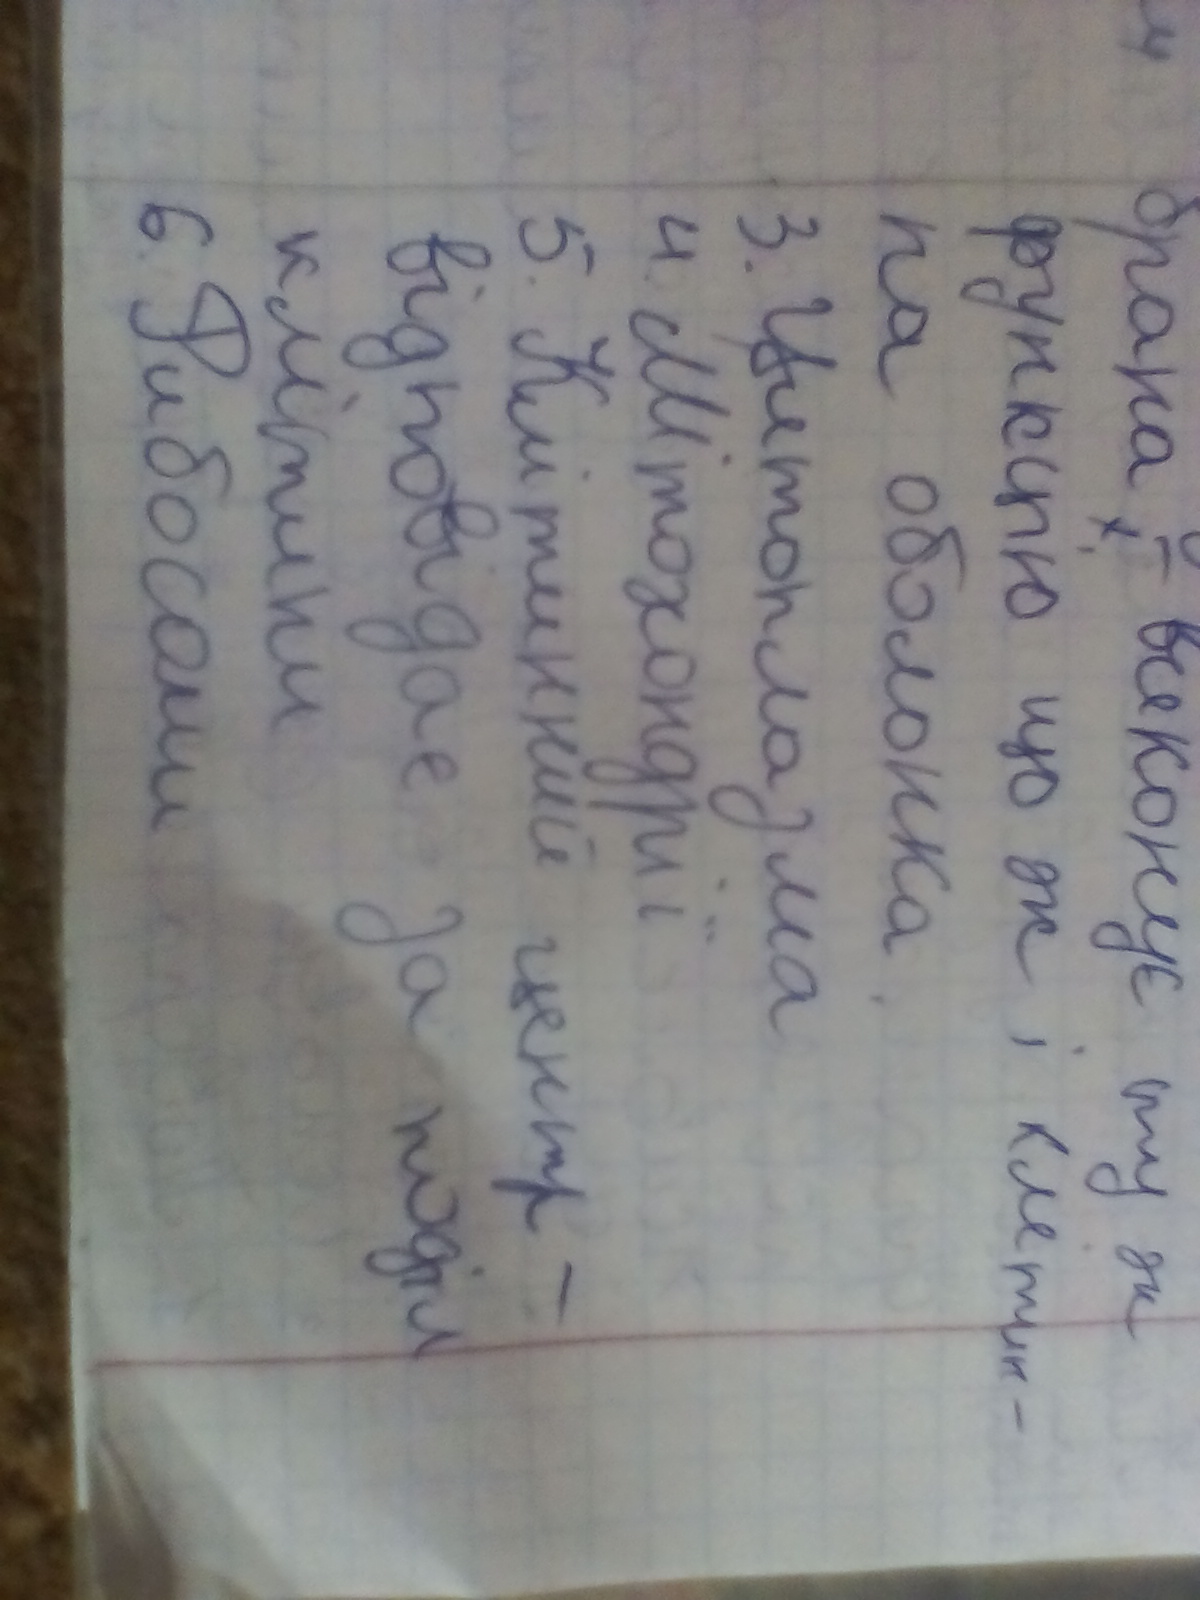 брана, – веконує ту ж
функцію що ж і клетин-
на оболонка.
3. Цитоплазма
4. Мітохондрії
5. Клітинний центр –
відповідає за поділ
клітини
6. Рибосоми